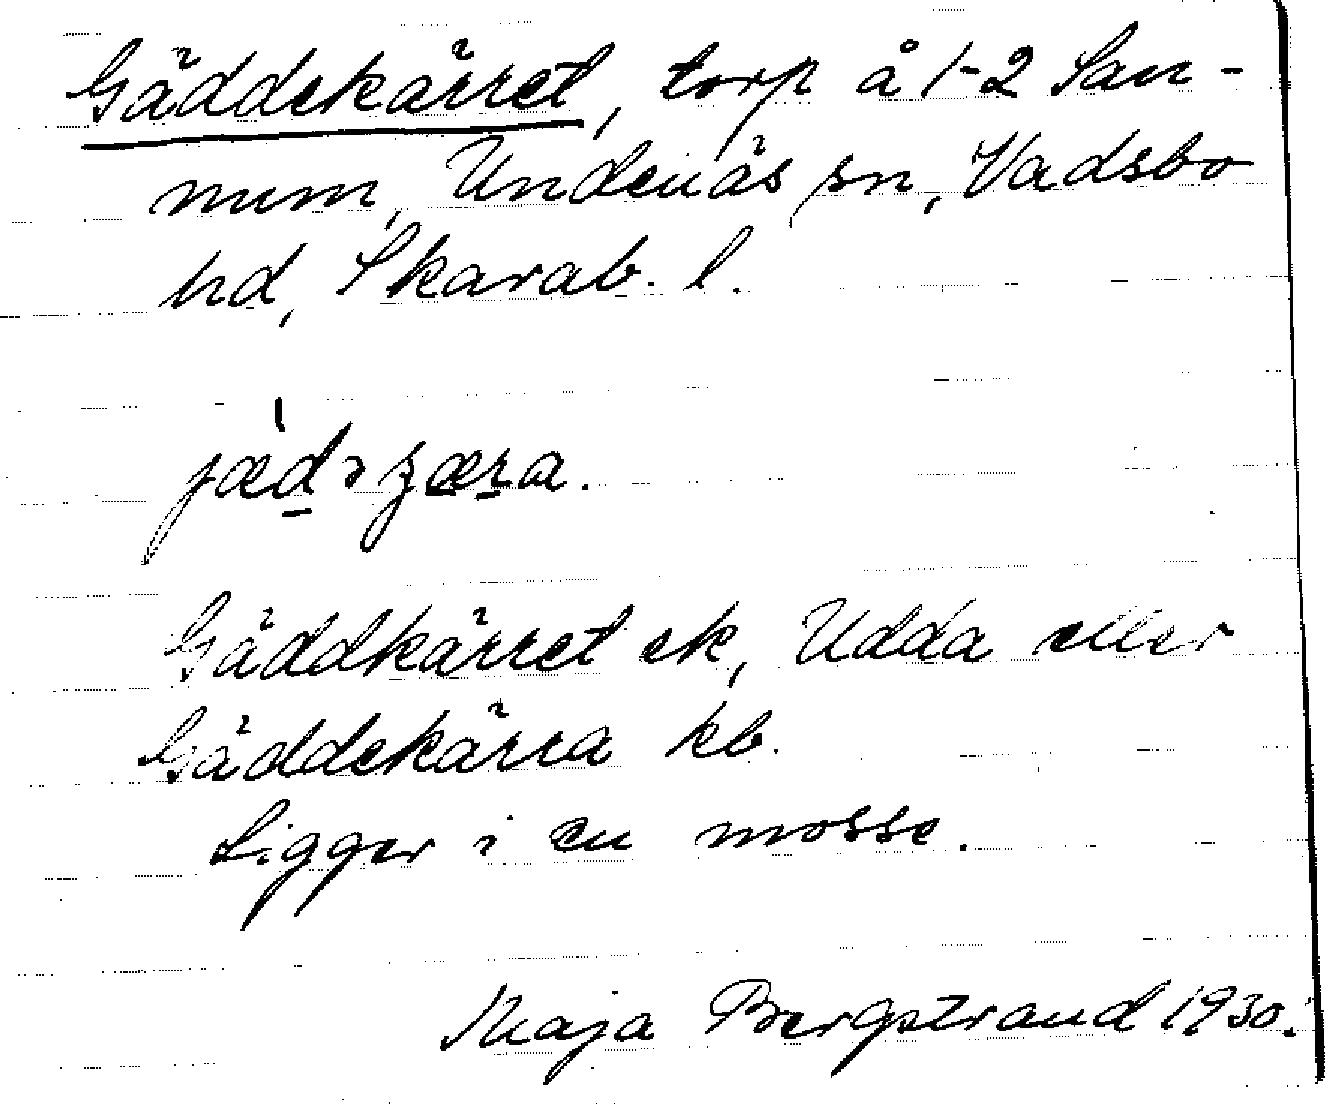 Gäddekärret, torp å 1-2 San-
num, Undenäs sn, Vadsbo
hd, Skarab. l.
jædəʒæra.
Gäddkärret ek, Udda eller
Gäddekärra kb.
Ligger i en mosse.
Maja Bergstrand 1930.